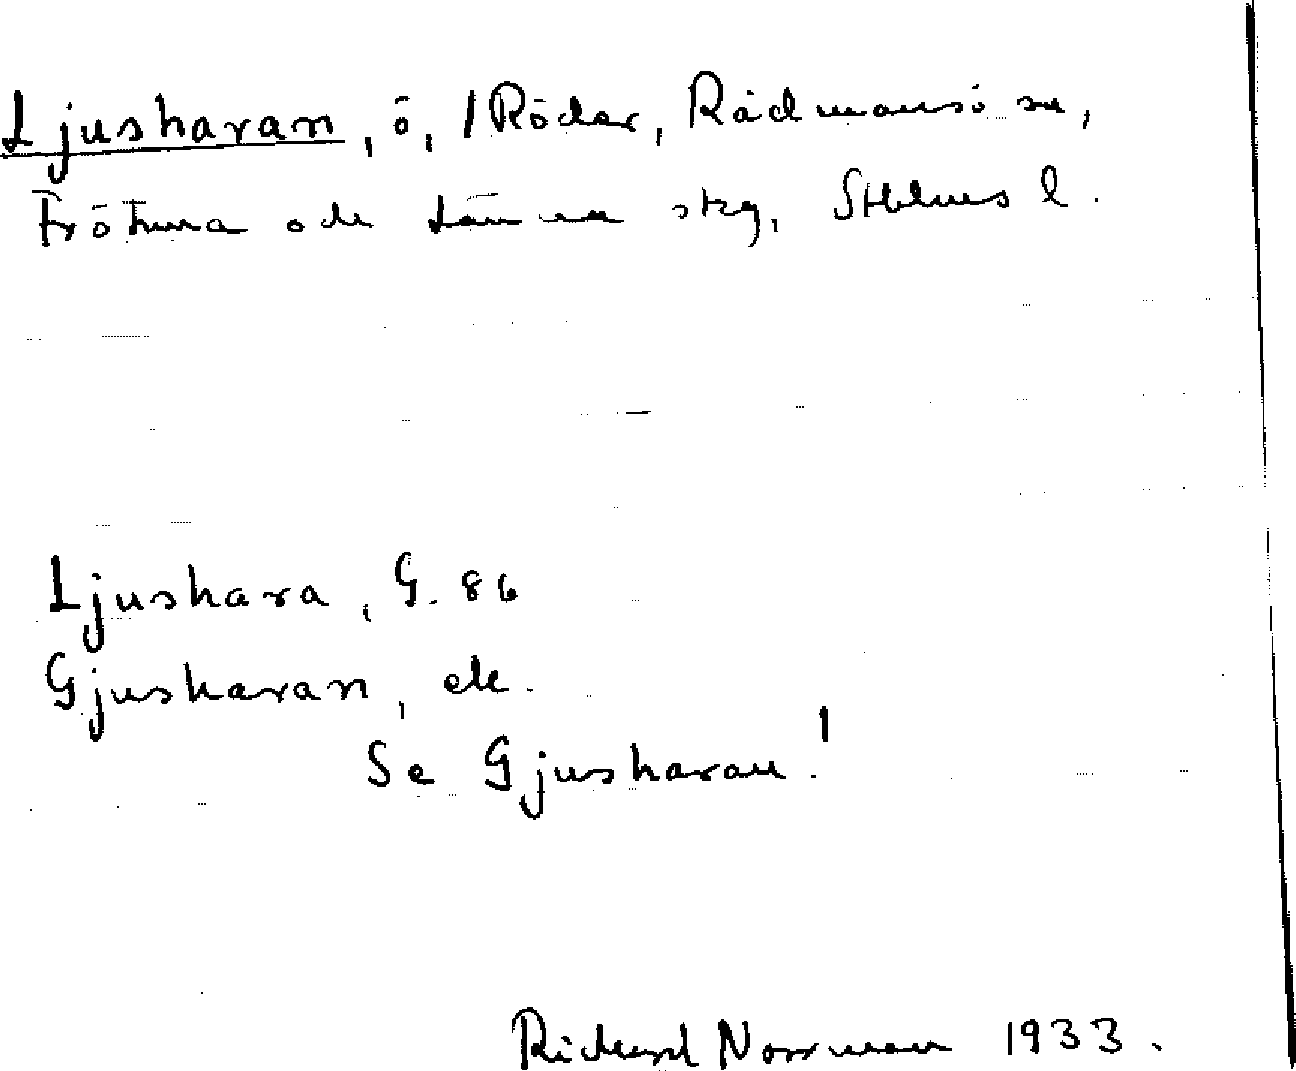 Ljusharan, ö, 1 Röder, Rådmansö sn,
Frötuna och Länna skg, Sthlms l.
Ljushara, G. 86
Gjusharan, ek.
Se Gjusharan!
Richard Norrman 1933.